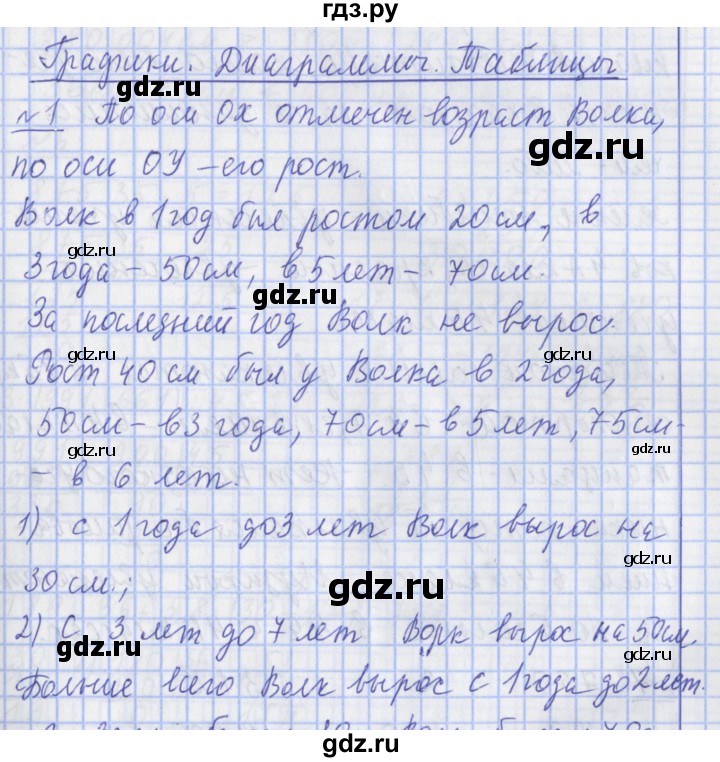 гдз.ру
Графики. Диаграммы. Таблицы
№1 По оси ОХ отмечен возраст Волка,
по оси ОУ – его рост.
Волк в 1 год был ростом 20 см, в
3 года – 50 см, в 5 лет – 70 см.
За последний год Волк не вырос.
Рост 40 см был у Волка в 2 года,
50 см – в 3 года, 70 см – в 5 лет, 75 см –
– в 6 лет.
1) с 1 года до 3 лет Волк вырос на
30 см.;
2) С 3 лет до 7 лет Ворк вырос на 50 см.
Больше всего Волк вырос с 1 года до 2 лет.
gdz.ru
gdz.ru
gdz.ru
gdz.ru
gdz.ru
gdz.ru
gdz.ru
gdz.ru
gdz.ru
gdz.ru
gdz.ru
gdz.ru
gdz.ru
gdz.ru